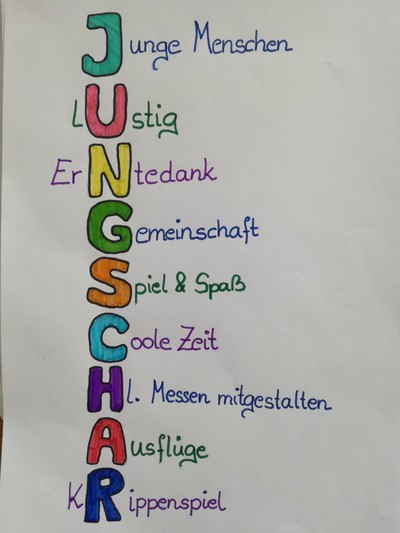 Junge Menschen
LUstig
ErNtedank
Gemeinschaft
Spiel & Spaß
Coole Zeit
Hl. Messen mitgestalten
Ausflüge
KRippenspiel